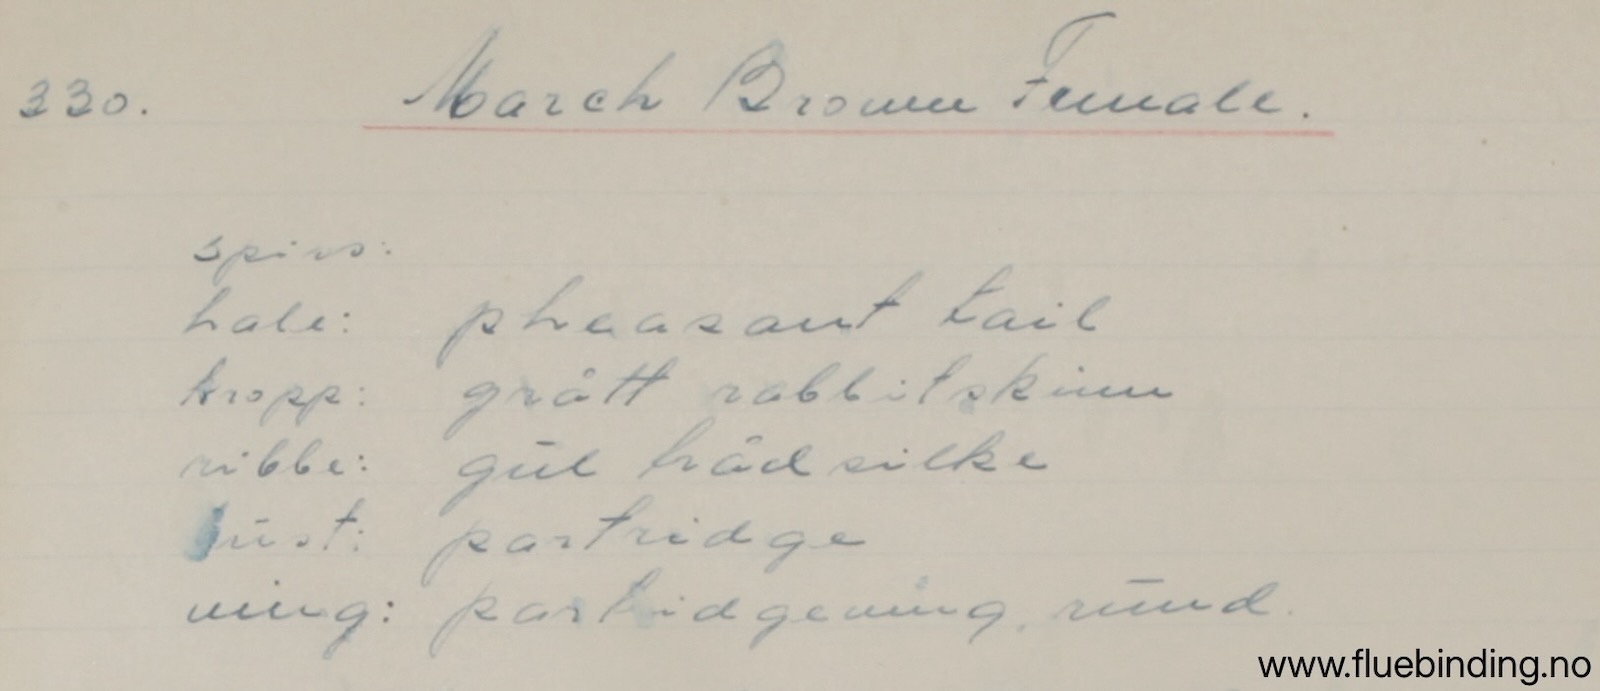 330. March Brown Female.
spiss:
hale: pheasant tail
kropp: grått rabbitskinn
ribbe: gul trådsilke
bust: partridge
ving: partridgeving, rund.
www.fluebinding.no